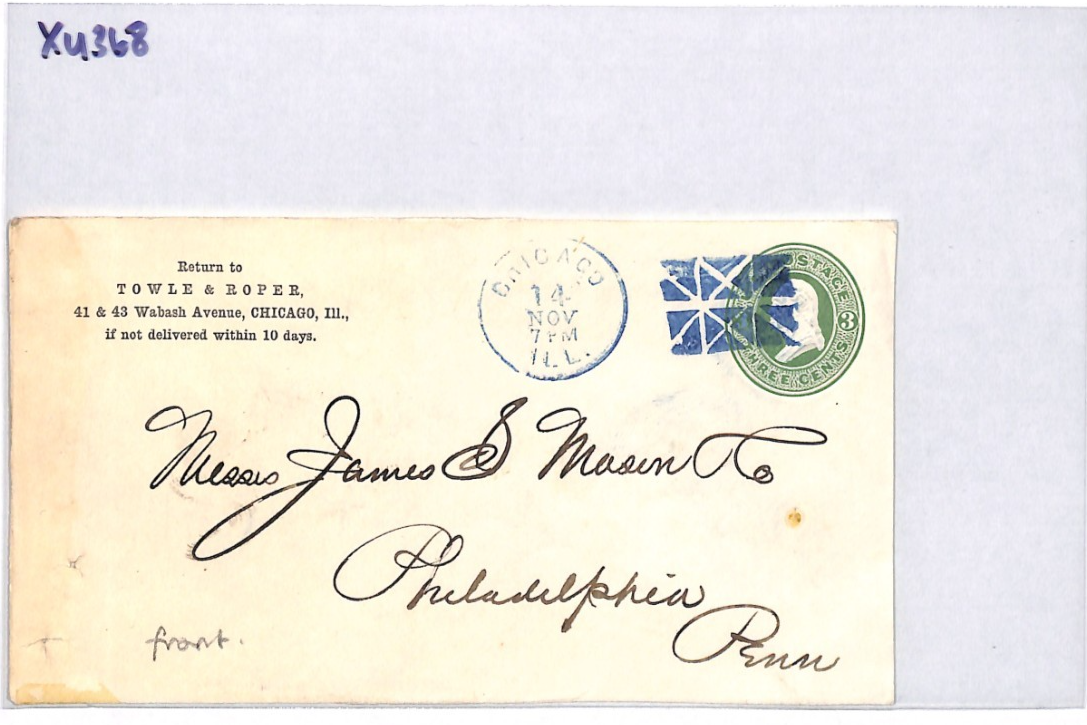 XU368
Return to
TOWLE & ROPER,
41 & 43 Wabash Avenue, CHICAGO, Ill.,
if not delivered within 10 days.
CHICAGO
14
NOV
7 PM
ILL.
POSTAGE
3
THREE CENTS
Messrs James S Mason & Co
Philadelphia
Penn
front.